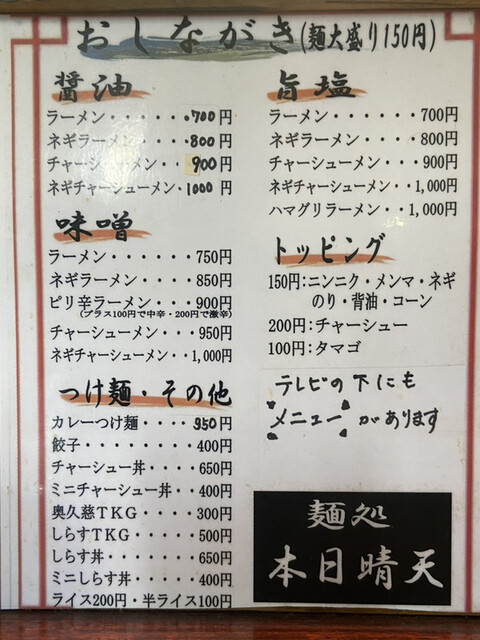 おしながき(麺大盛り150円)
醤油
ラーメン・・・・・・700円
ネギラーメン・・・・800円
チャーシューメン・・900円
ネギチャーシューメン・1000円
味噌
ラーメン・・・・・・750円
ネギラーメン・・・・850円
ピリ辛ラーメン・・・900円
(プラス100円で中辛・200円で激辛)
チャーシューメン・・950円
ネギチャーシューメン・・1,000円
つけ麺・その他
カレーつけ麺・・・・950円
餃子・・・・・・・・400円
チャーシュー丼・・・650円
ミニチャーシュー丼・・400円
奥久慈TKG・・・・300円
しらすTKG・・・・500円
しらす丼・・・・・・650円
ミニしらす丼・・・・400円
ライス200円・半ライス100円
旨塩
ラーメン・・・・・・700円
ネギラーメン・・・・800円
チャーシューメン・・・900円
ネギチャーシューメン・・1,000円
ハマグリラーメン・・1,000円
トッピング
150円:ニンニク・メンマ・ネギ
のり・背油・コーン
200円:チャーシュー
100円:タマゴ
テレビの下にも
メニューがあります
麺処
本日晴天